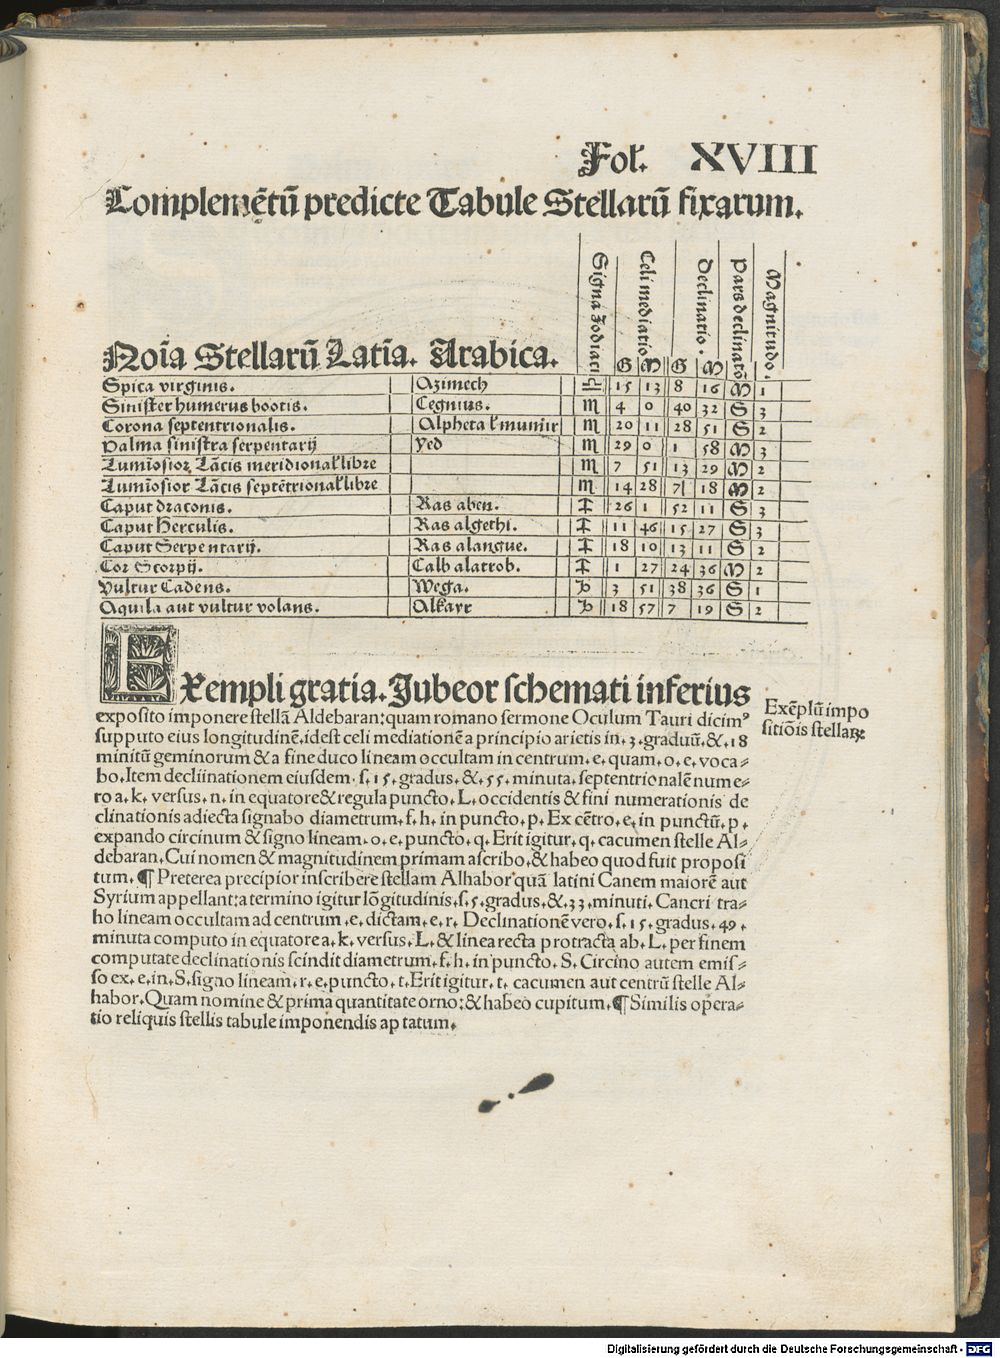 Fol. XVIII
Complemētū predicte Tabule Stellarū fixarum.
Signa Zodiaci
Celi mediatio
Declinatio.
Pars declinatōis
Magnitudo.
Noīa Stellarū Latīa. Arabica. G M G M
Spica virginis. Azimech ♎ 15 13 8 16 M 1
Sinister humerus bootis. Cegnius. ♏ 4 0 40 32 S 3
Corona septentrionalis. Alpheta ł munir ♏ 20 11 28 51 S 2
Palma sinistra serpentarij Yed ♏ 29 0 1 58 M 3
Lumīosior Lācis meridional' libre ♏ 7 51 13 29 M 2
Lumīosior Lācis septētrional' libre ♏ 14 28 7 18 M 2
Caput draconis. Ras aben. ♐ 26 1 52 11 S 3
Caput Herculis. Ras algethi. ♐ 11 46 15 27 S 3
Caput Serpentarij. Ras alangue. ♐ 18 10 13 11 S 2
Cor Scorpij. Calb alatrob. ♐ 1 27 24 36 M 2
Vultur Cadens. Wega. ♑ 3 51 38 36 S 1
Aquila aut vultur volans. Alkayr ♑ 18 57 7 19 S 2
EXempli gratia. Jubeor schemati inferius
exposito imponere stellā Aldebaran: quam romano sermone Oculum Tauri dicimꝰ
supputo eius longitudinē. idest celi mediationē a principio arietis in .3. graduū. &. 18
minitū geminorum & a fine duco lineam occultam in centrum. e. quam. o. e. voca⸗
bo. Item decliinationem eiusdem. s. 15. gradus. &. 55. minuta. septentrionalē nume⸗
ro a. k. versus. n. in equatore & regula puncto. L. occidentis & fini numerationis de
clinationis adiecta signabo diametrum. f. h. in puncto. p. Ex cētro. e. in punctū. p.
expando circinum & signo lineam. o. e. puncto. q. Erit igitur. q. cacumen stelle Al⸗
debaran. Cui nomen & magnitudinem primam ascribo. & habeo quod fuit proposi
tum. ¶ Preterea precipior inscribere stellam Alhabor quā latini Canem maiorē aut
Syrium appellant: a termino igitur lōgitudinis. s. 5. gradus. &. 33. minuti. Cancri tra⸗
ho lineam occultam ad centrum .e. dictam. e. r. Declinationē vero. s. 15. gradus. 49.
minuta computo in equatore a. k. versus. L. & linea recta protracta ab. L. per finem
computate declinationis scindit diametrum. f. h. in puncto. S. Circino autem emis⸗
so ex. e. in. S. signo lineam. r. e. puncto. t. Erit igitur. t. cacumen aut centrū stelle Al⸗
habor. Quam nomine & prima quantitate orno: & habeo cupitum. ¶ Similis opera⸗
tio reliquis stellis tabule imponendis aptatum.
Exēplū impo
sitiōis stellaꝝ:
Digitalisierung gefördert durch die Deutsche Forschungsgemeinschaft - DFG